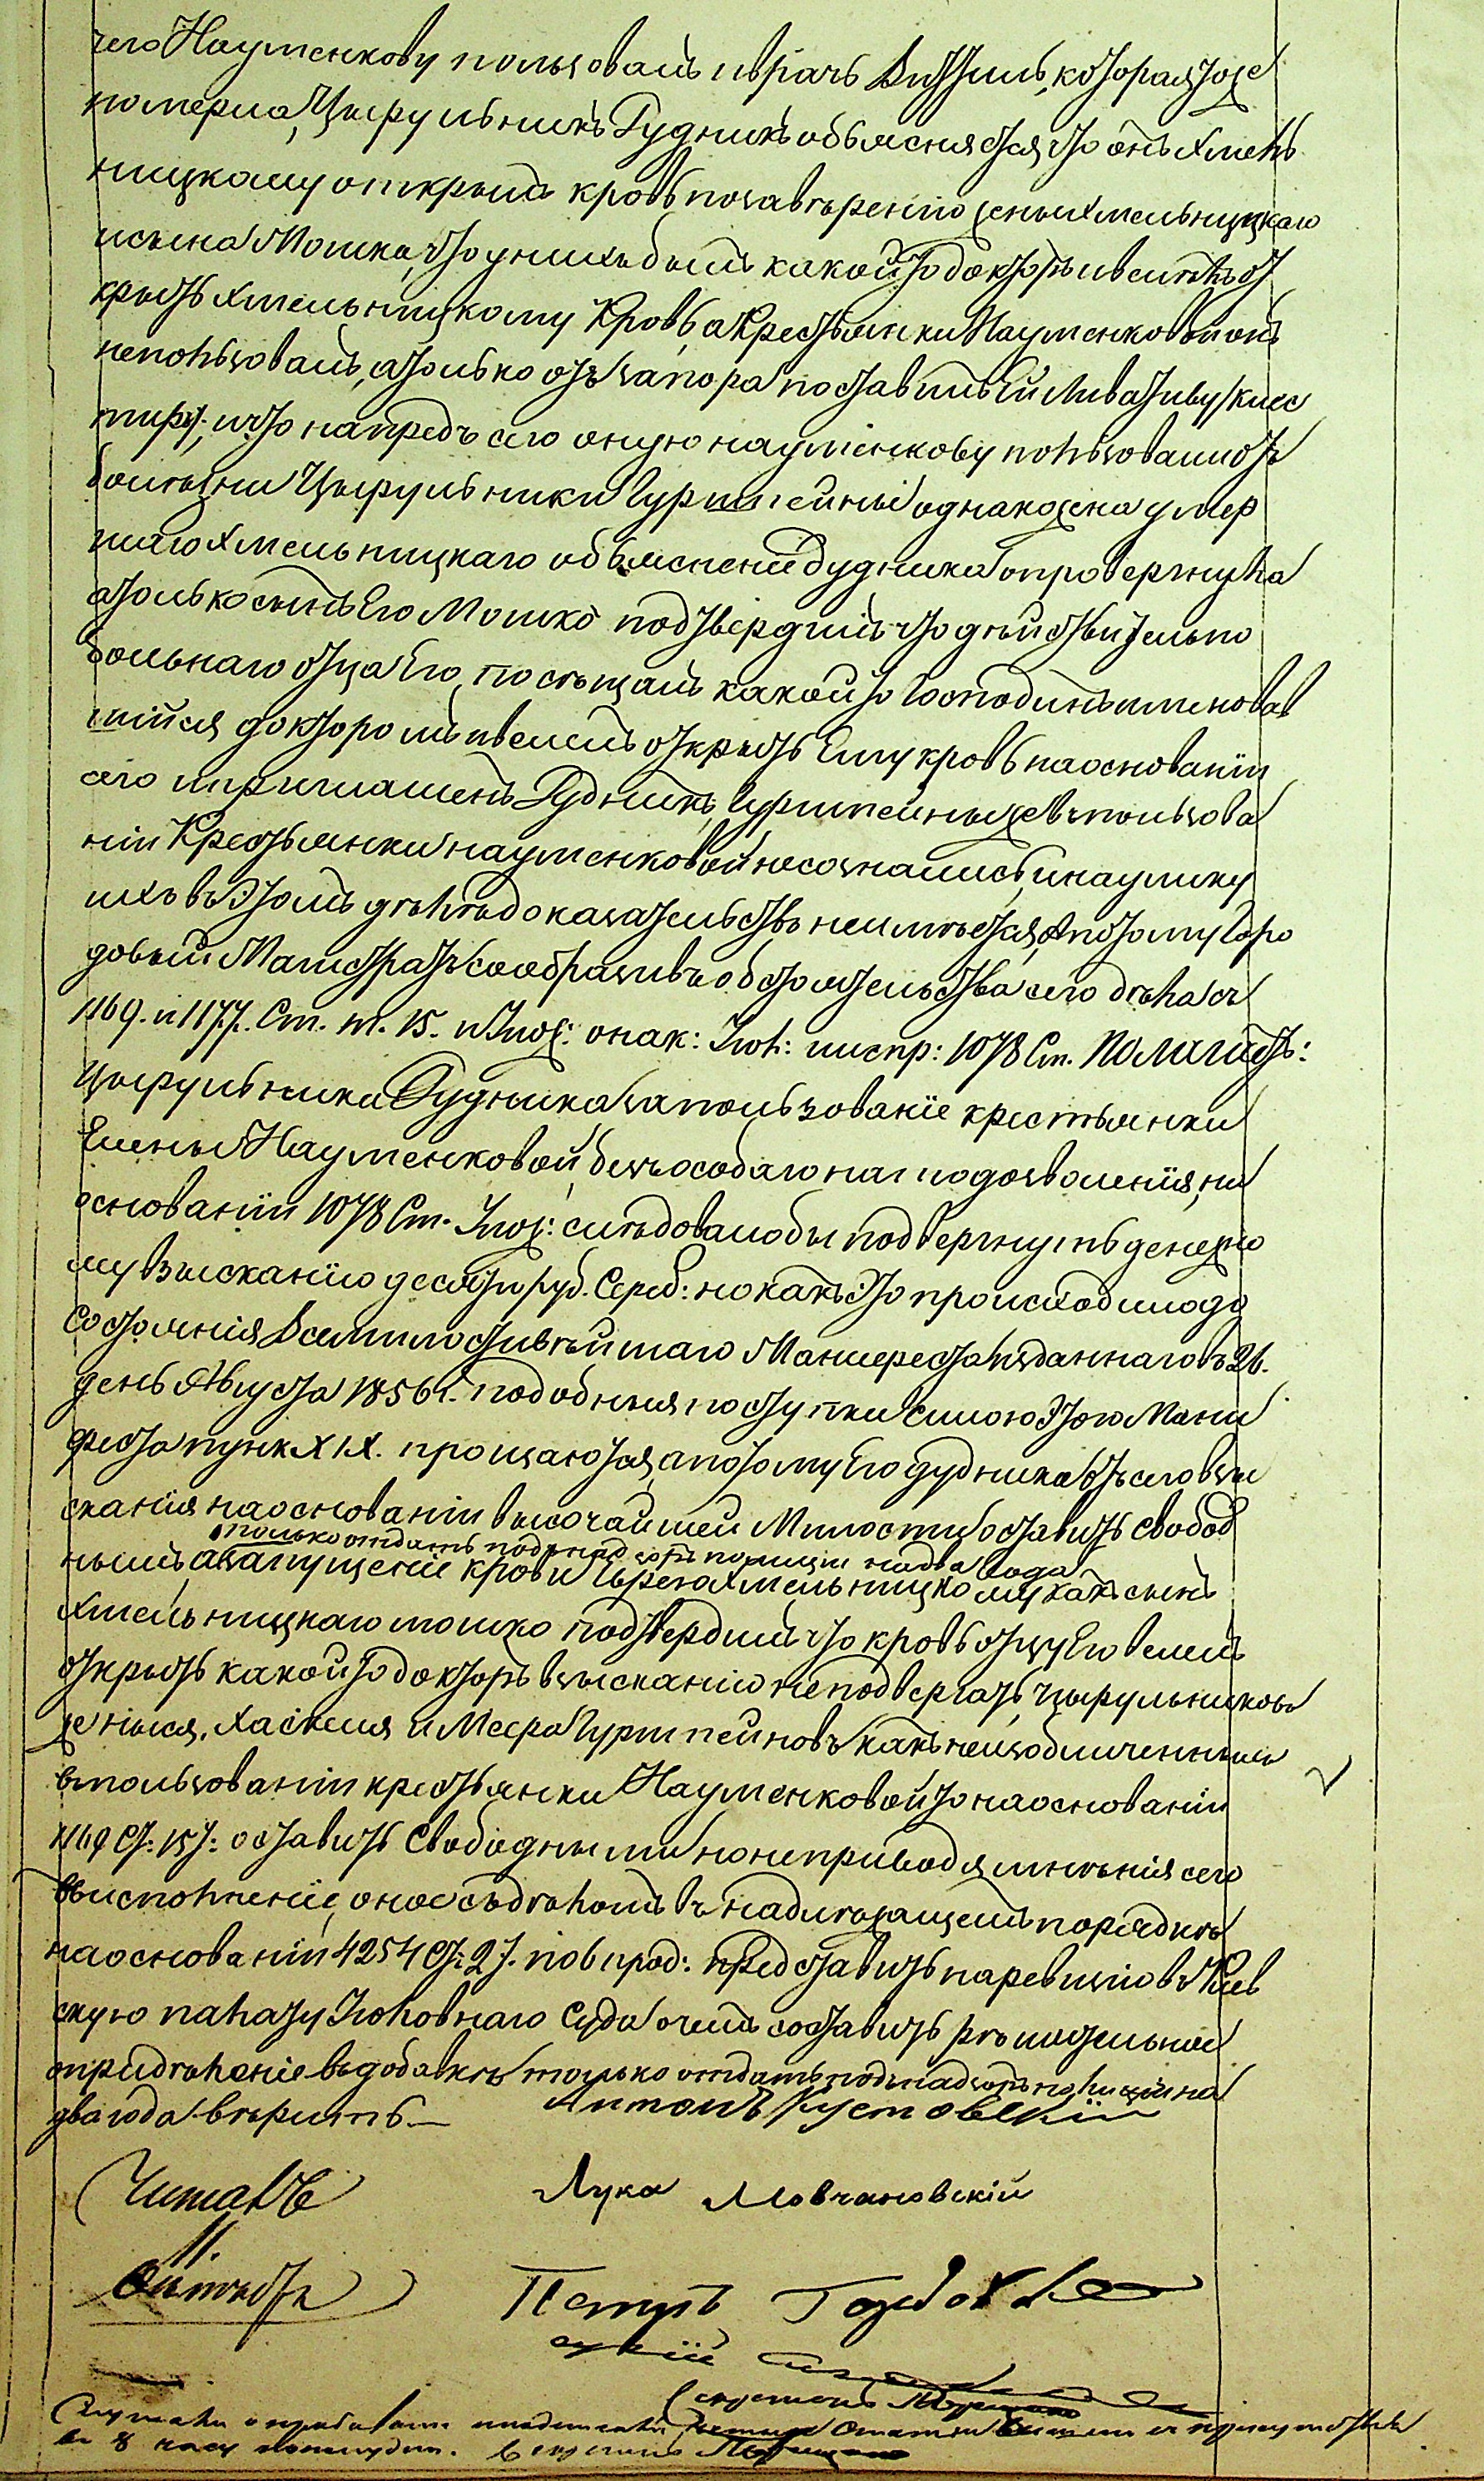 чего Науменкову пользовалъ и врачъ Виттель, которая тоже
померла, Цырульникъ Дудникъ объясняется, что онъ Хмель
ницкому открылъ кровь по завѣренію жены Хмельницкаго
и сына Мошка, что у нихъ былъ какой то докторъ и велѣлъ от
крыть Хмельницкому Кровь, а Крестьянки Науменковой онъ
непользовалъ, а только отъ запора поставилъ Ей Ливативу /клис
тиръ/; и что напредъ сего оную науменкову пользовали отъ
болѣзни Цырульники Гурштейны однакожъ на умер
шаго Хмельницкаго объясненіе Дудника опровергнута
а только сынъ Его Мошко подтвердилъ что дѣйствительно
больнаго отца Его, посѣщалъ какой то Господинъ именовав
шійся докторомъ и велелъ открыть Ему кровь на основаніи
сего и приглашенъ Дудникъ, Гурштейны же въ пользова
ніи Крестьянки науменковой несознались, и на улику
ихъ въ Этомъ дѣлѣ доказательствъ неимѣется, А потому Горо
довый Магистратъ сообразивъ обстоятельства сего дѣла съ
1169. и 1177. Ст. т. 15. и Улож: о нак: Угол: и испр: 1078 Ст. Полагаетъ:
Цырульника Дудника за пользованіе крестьянки
Елены Науменковой, безъ особаго на то подозволенія, на
основаніи 1078 Ст. Улож: слѣдовало бы подвергнуть денежно
му взысканію десяти руб. Сереб: но какъ Это происходило до
состоянія Всемилостивѣйшаго Манифеста изданнаго въ 26.
день Августа 1856 г. подобныя поступки силою Этого Мани
феста пунк. XIX. прощаются, а потому Его дудника отъ сего взы
сканія на основаніи высочайшей Милости оставить свобод
только отдать подъ надзоръ полиціи на два года
нымъ, а за пущеніе крови Хмельницкому какъ сынъ
Хмельницкаго мошко подтвердилъ что кровь отцу Его велелъ
открыть какой то докторъ взысканію неподвергать, цырульниковъ
же Хаскеля и Меера Гурштейновъ какъ неизобличенныхъ
въ пользованіи крестьянки Науменковой то на основаніи
1169 Ст: 15 т: оставить Свободными но неприводя мнѣнія сего
въ исполненіе, оное съ дѣломъ въ надлежащемъ порядкѣ
на основаніи 4254 Ст: 2 т. по 6 прод: представить на ревизію въ Кіев
скую палату Уголовнаго Суда о чемъ составить рѣшительное
опредѣленіе въ добавкѣ только отдать подъ надзоръ полиціи на
два года вѣрить.—
Антонъ Кустовскій
Читалъ
Лука Мовчановскій
11.
Октября
Петръ
Секретарь